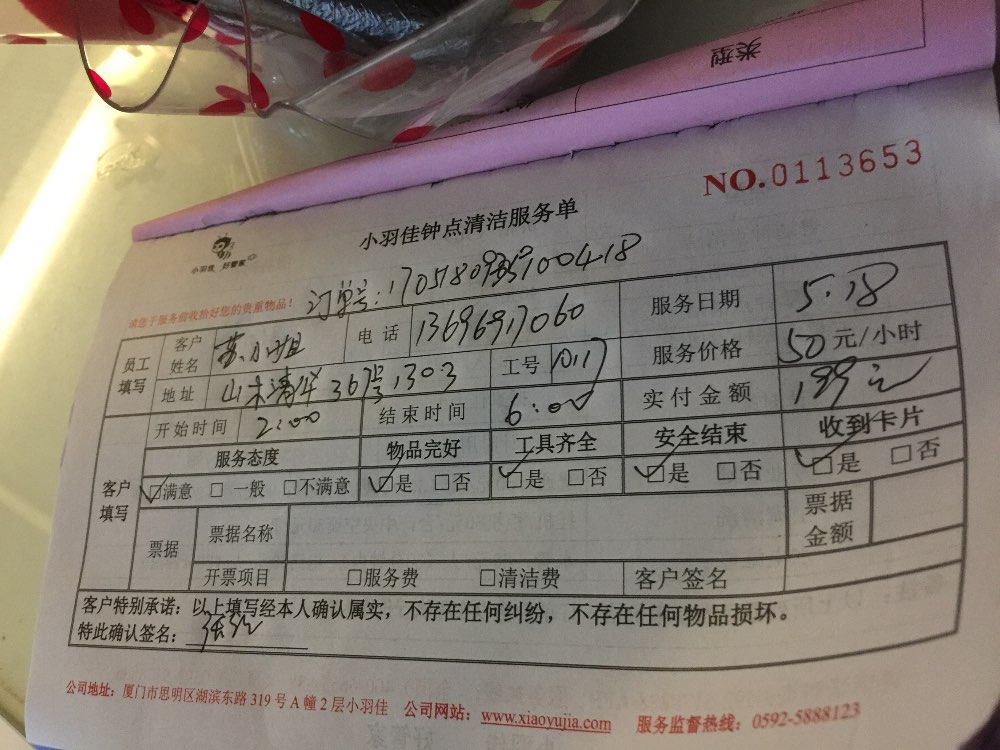 类型
NO.0113653
小羽佳钟点清洁服务单
小羽佳 好管家
请您于服务前收拾好您的贵重物品!
订单号:
员工填写 客户姓名 苏小姐 电话 13696917060 服务日期 5.18
地址 山水清华36号1303 工号 1017 服务价格 50元/小时
开始时间 2:00 结束时间 6:00 实付金额 199元
客户填写 服务态度 物品完好 工具齐全 安全结束 收到卡片
☑满意 □一般 □不满意 ☑是 □否 ☑是 □否 ☑是 □否 ☑是 □否
票据 票据名称 票据金额
开票项目 □服务费 □清洁费 客户签名
客户特别承诺:以上填写经本人确认属实,不存在任何纠纷,不存在任何物品损坏。
特此确认签名:
公司地址:厦门市思明区湖滨东路319号A幢2层小羽佳 公司网站:www.xiaoyujia.com 服务监督热线:0592-5888123